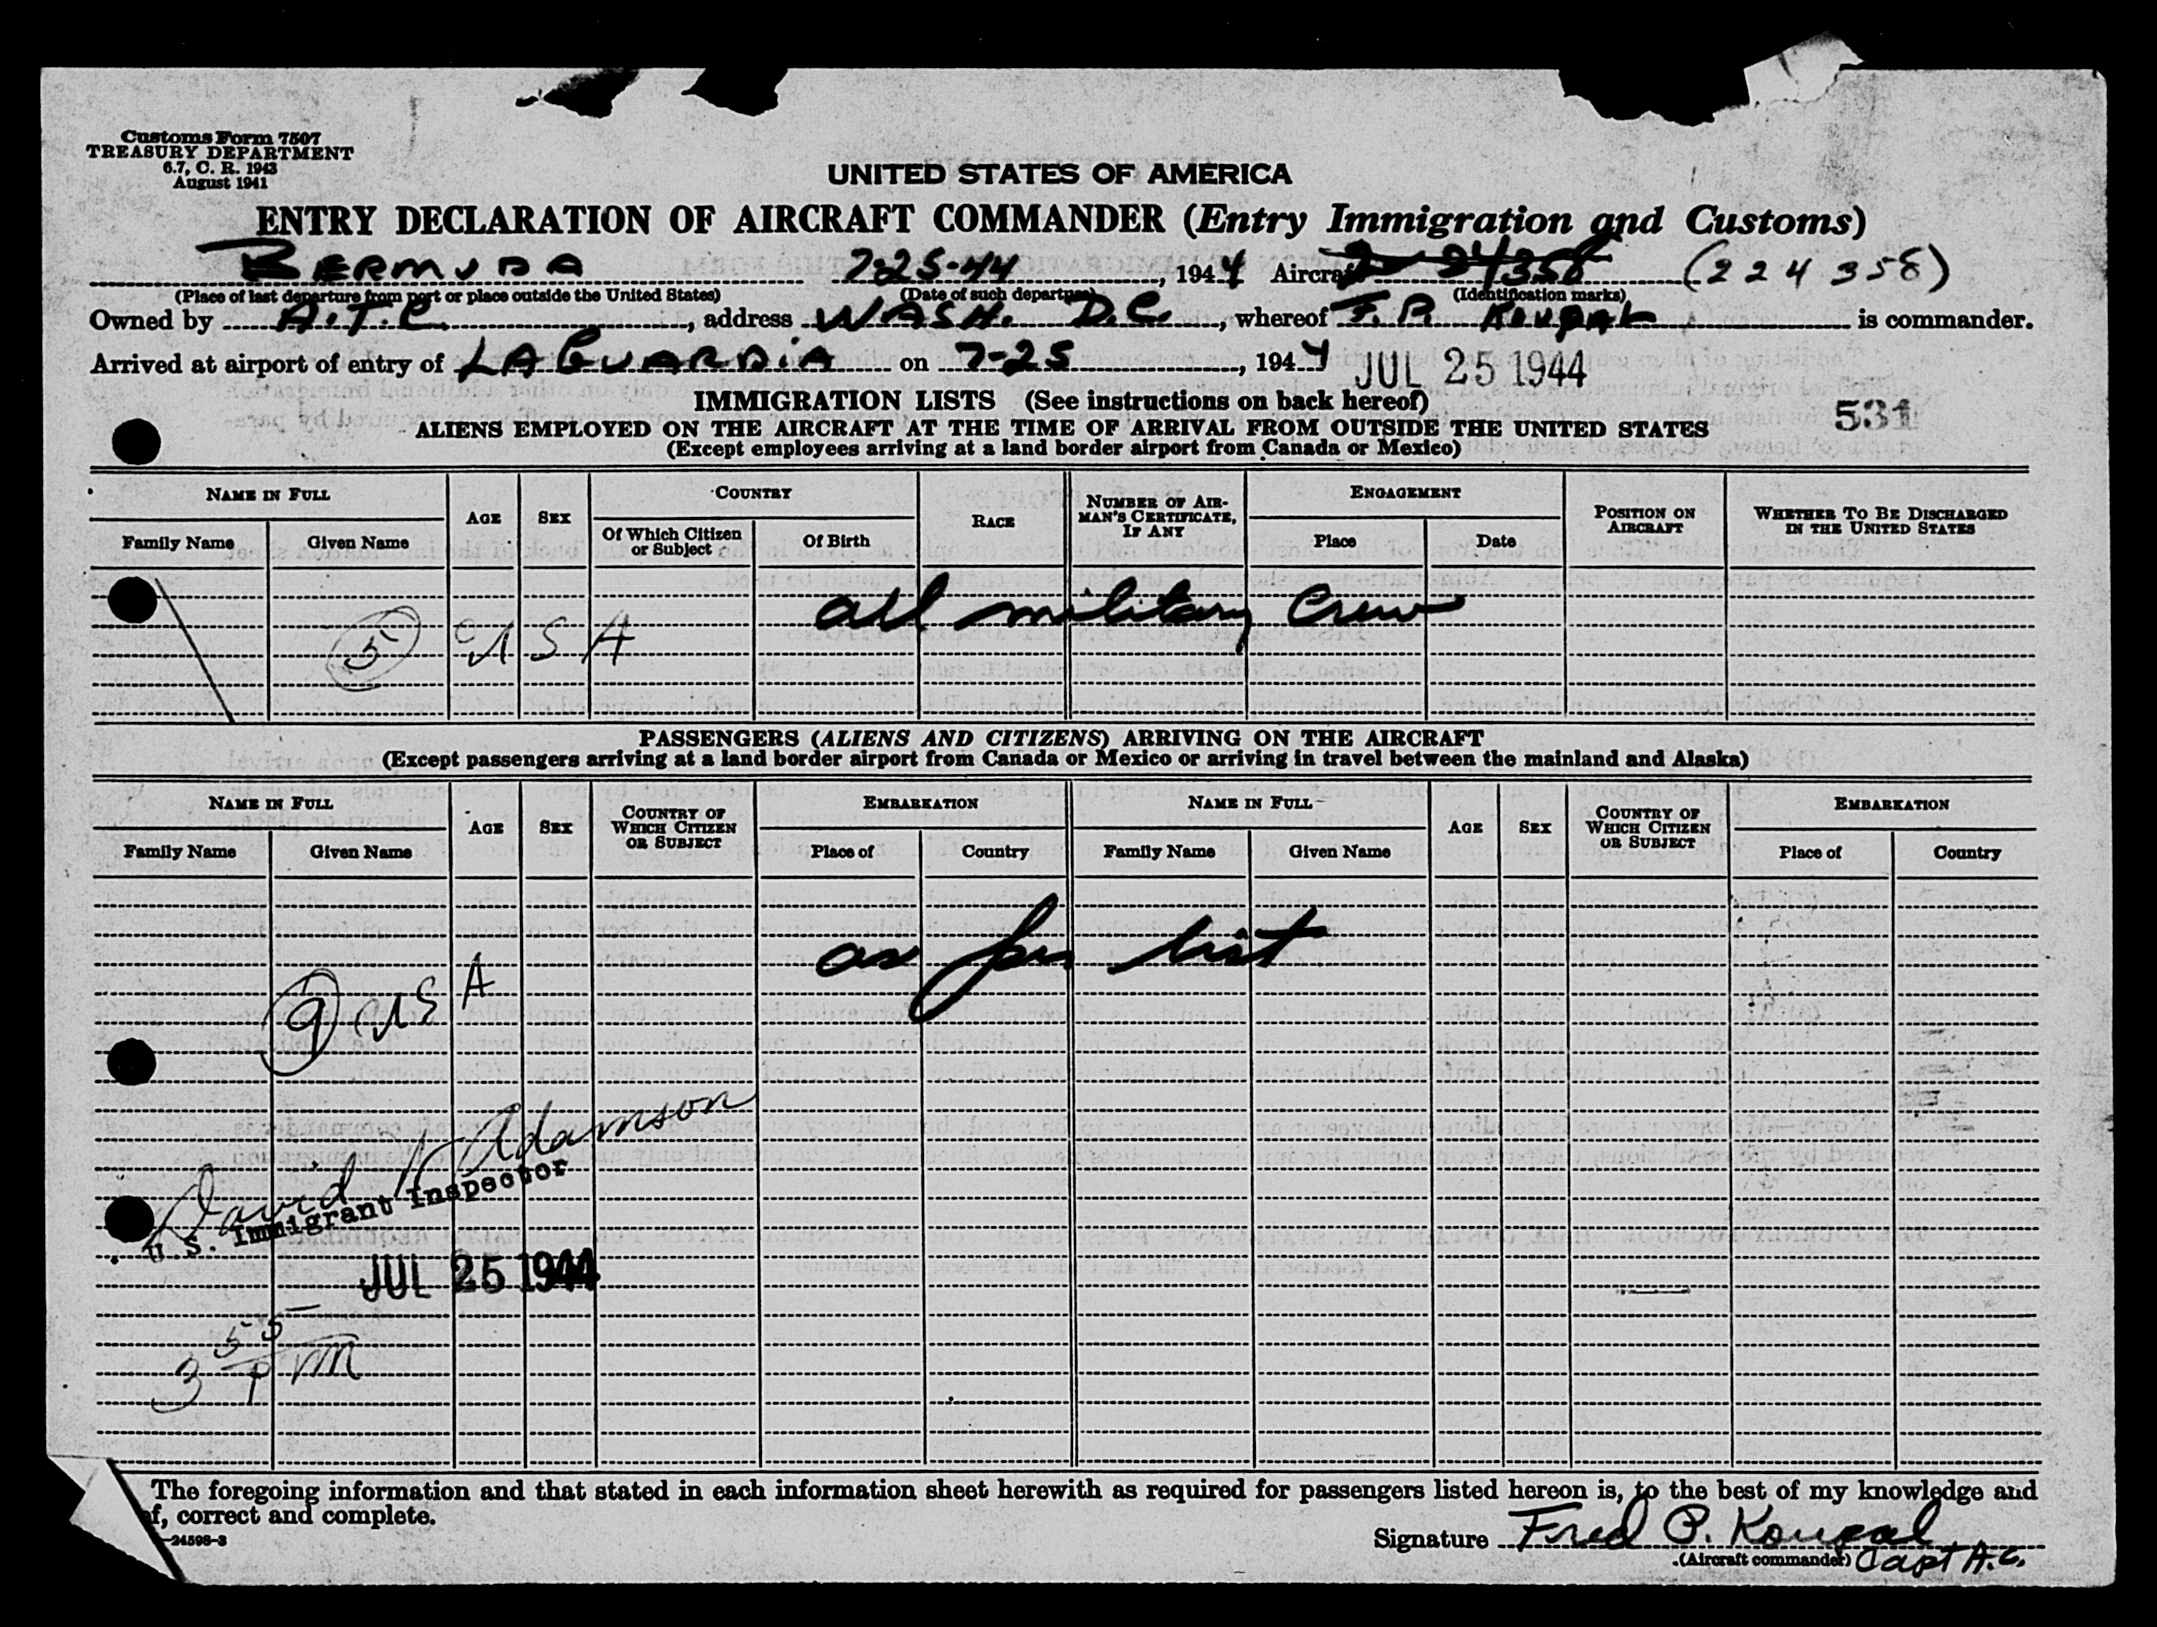 Customs Form 7507
TREASURY DEPARTMENT
6.7, C. R. 1943
August 1941
UNITED STATES OF AMERICA
ENTRY DECLARATION OF AIRCRAFT COMMANDER (Entry Immigration and Customs)
BERMUDA 7-25-44, 1944 Aircraft 24358 (224358)
(Place of last departure from port or place outside the United States) (Date of such departure) (Identification marks)
Owned by A.T.C., address WASH. D.C., whereof F. P. is commander.
Arrived at airport of entry of LA GUARDIA on 7-25, 1944 JUL 25 1944
IMMIGRATION LISTS (See instructions on back hereof)
531
ALIENS EMPLOYED ON THE AIRCRAFT AT THE TIME OF ARRIVAL FROM OUTSIDE THE UNITED STATES
(Except employees arriving at a land border airport from Canada or Mexico)
NAME IN FULL AGE SEX COUNTRY RACE NUMBER OF AIRMAN'S CERTIFICATE, IF ANY ENGAGEMENT POSITION ON AIRCRAFT WHETHER TO BE DISCHARGED IN THE UNITED STATES
Family Name Given Name Of Which Citizen or Subject Of Birth Place Date
all military crew
5 USA
PASSENGERS (ALIENS AND CITIZENS) ARRIVING ON THE AIRCRAFT
(Except passengers arriving at a land border airport from Canada or Mexico or arriving in travel between the mainland and Alaska)
NAME IN FULL AGE SEX COUNTRY OF WHICH CITIZEN OR SUBJECT EMBARKATION NAME IN FULL AGE SEX COUNTRY OF WHICH CITIZEN OR SUBJECT EMBARKATION
Family Name Given Name Place of Country Family Name Given Name Place of Country
as per list
9 USA
David Adamson
U. S. Immigrant Inspector
JUL 25 1944
3 55 PM
The foregoing information and that stated in each information sheet herewith as required for passengers listed hereon is, to the best of my knowledge and
f, correct and complete.
-24598-3
Signature Fred P. Koupal
(Aircraft commander) Capt A.C.